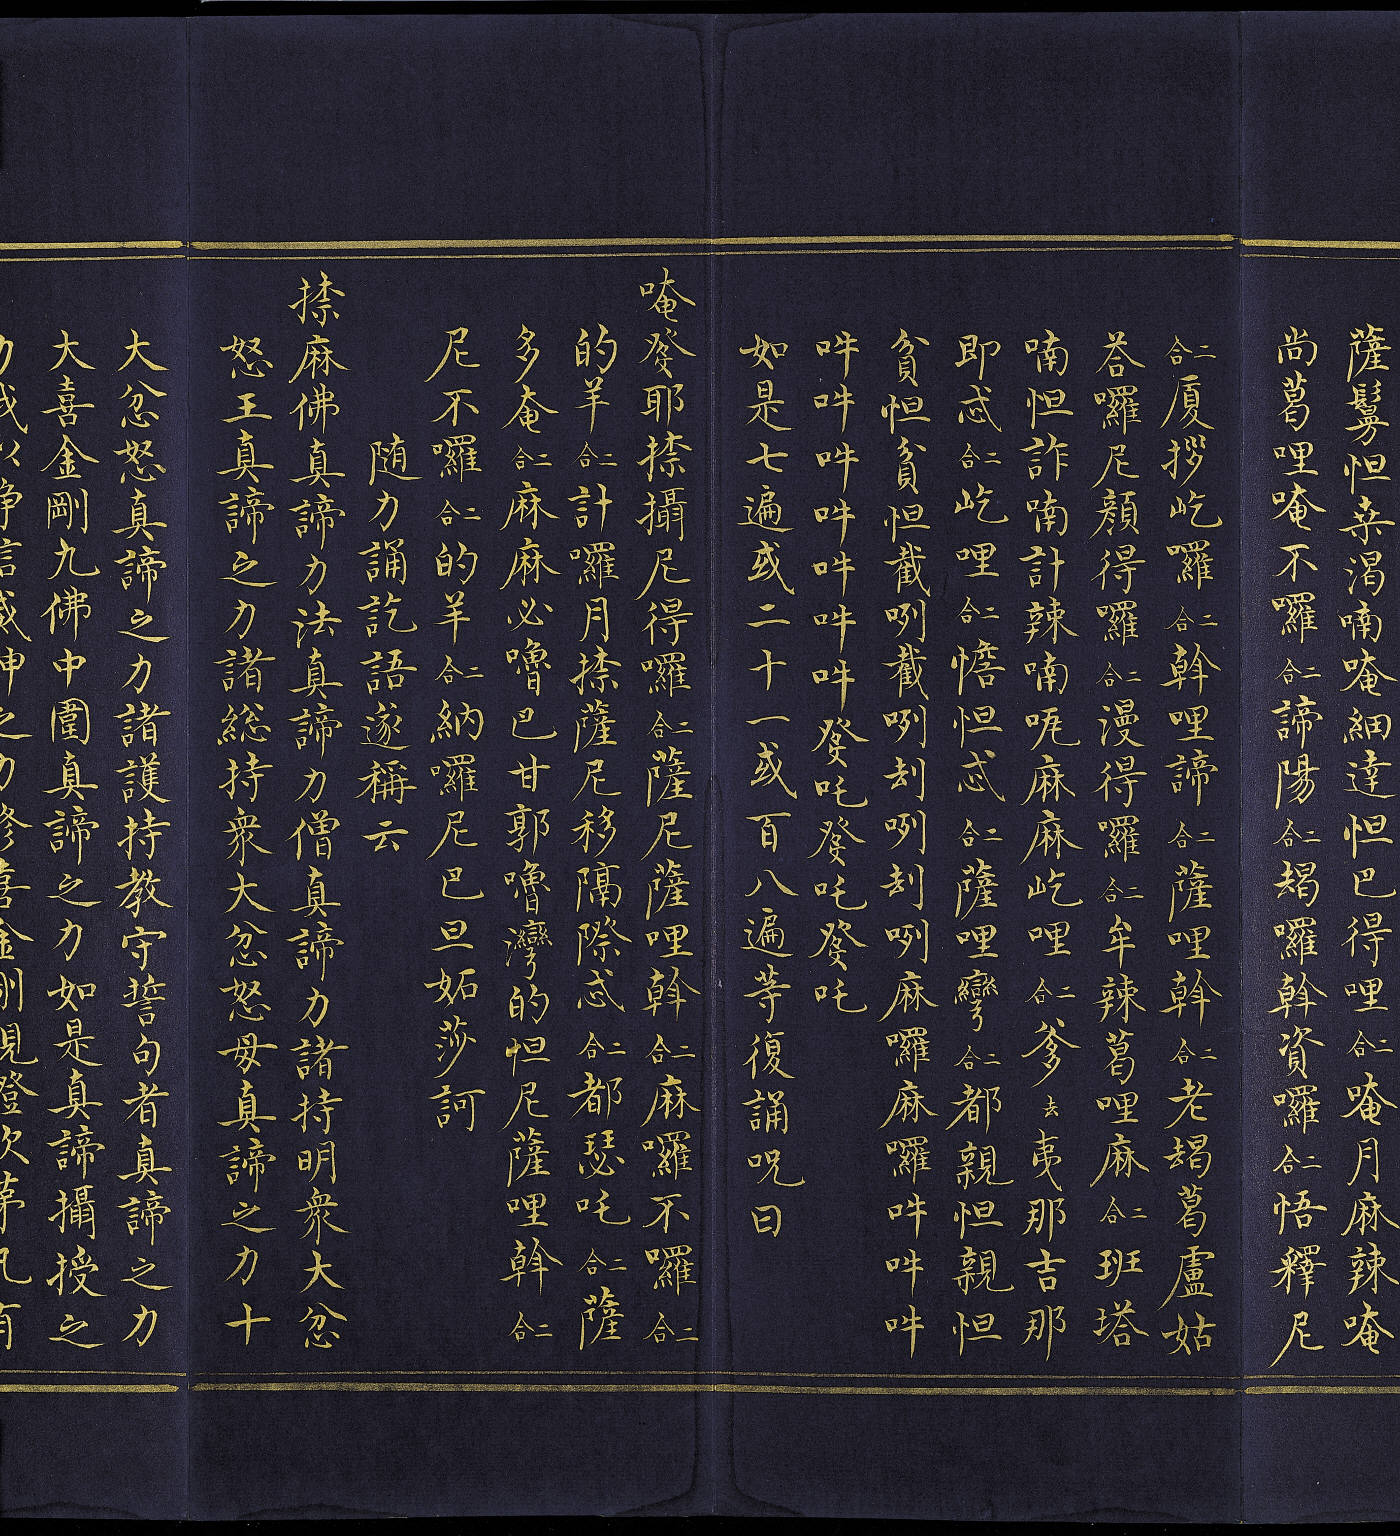 薩鬘怛桒渴喃唵細達怛巴得哩二合唵月麻辣唵
尚葛哩唵不囉二合諦陽二合朅囉斡資囉二合悟釋尼
二合厦拶屹囉二合斡哩諦二合薩哩斡二合老朅葛盧姑
荅囉尼顔得囉二合漫得囉二合牟辣葛哩麻二合班塔
喃怛詐喃計辣喃呃麻麻屹哩二合爹去夷那吉那
即忒二合屹哩二合憺怛忒二合薩哩彎二合都親怛親怛
貧怛貧怛截咧截咧刦咧刦咧麻囉麻囉吽吽吽
吽吽吽吽吽吽吽癹吒癹吒癹吒
如是七遍或二十一或百八遍等復誦呪曰
唵癹耶捺攝尼得囉二合薩尼薩哩斡二合麻囉不囉二合
的羊二合計囉月捺薩尼移隔際忒二合都瑟吒二合薩
多奄二合麻麻必嚕巴甘郭嚕灣的怛尼薩哩斡二合
尼不囉二合的羊二合納囉尼巴旦妬莎訶
随力誦訖語遂稱云
捺麻佛真諦力法真諦力僧真諦力諸持明衆大忿
怒王真諦之力諸総持衆大忿怒毋真諦之力十
大忿怒真諦之力諸護持教守誓句者真諦之力
大喜金剛九佛中圍真諦之力如是真諦攝授之
力我以净信威神之力修喜金剛現證次苐凡有